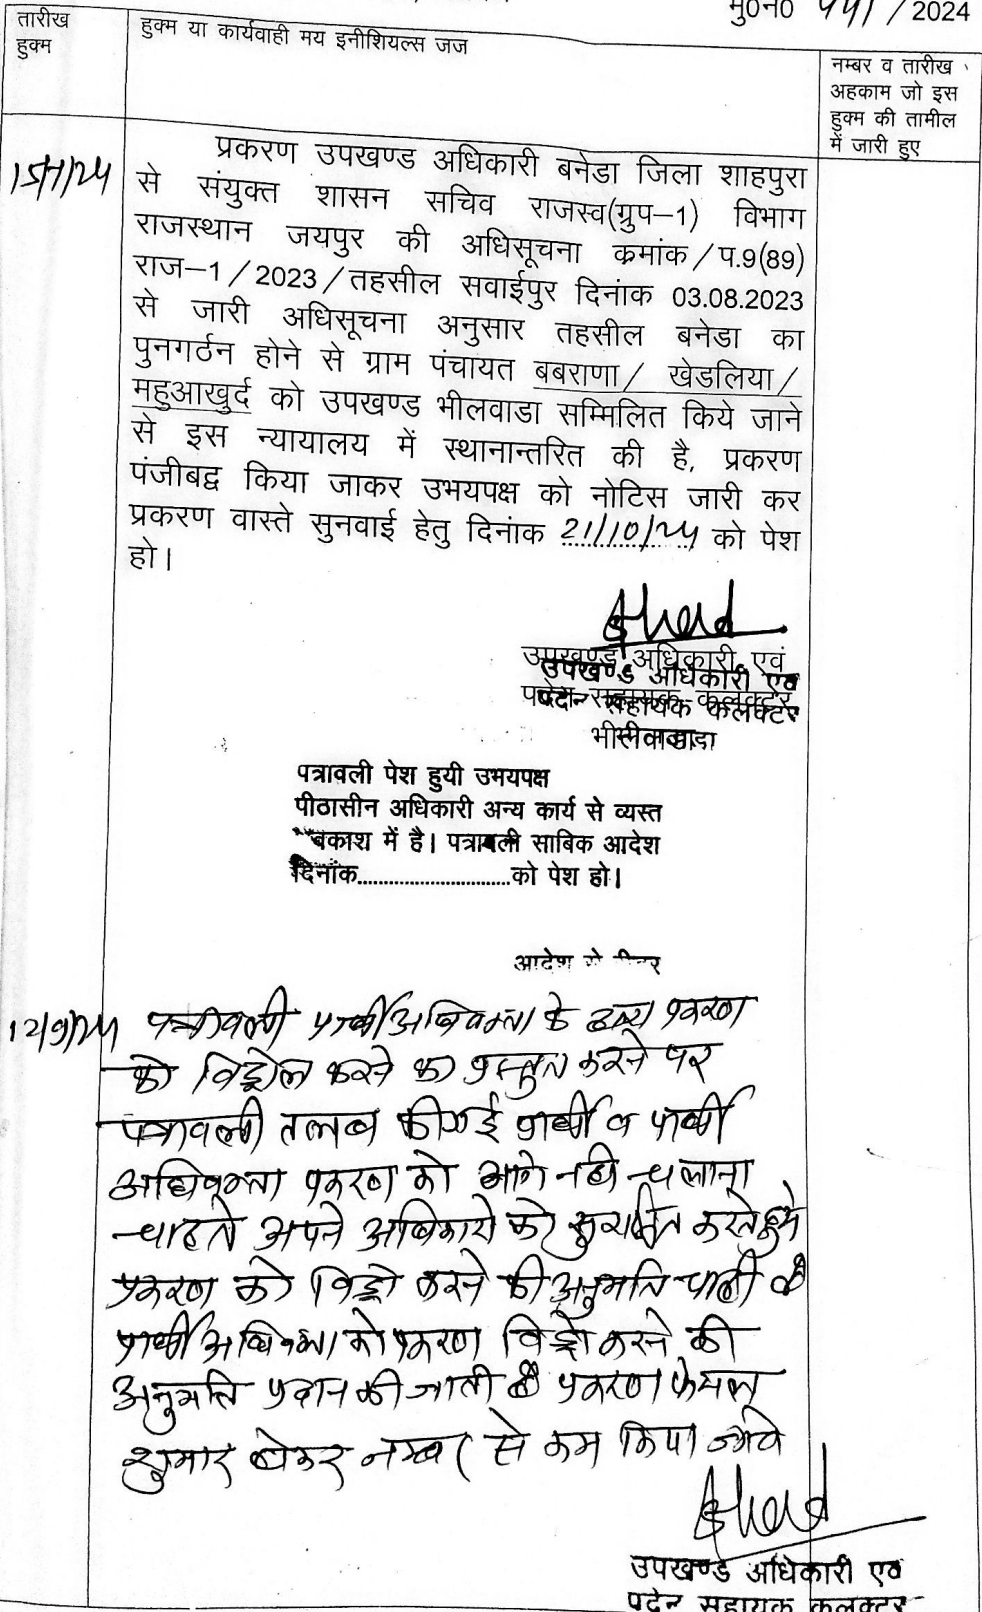 मु0न0 441/2024
तारीख
हुक्म
हुक्म या कार्यवाही मय इनीशियल्स जज
नम्बर व तारीख
अहकाम जो इस
हुक्म की तामील
में जारी हुए
15/7/24
प्रकरण उपखण्ड अधिकारी बनेडा जिला शाहपुरा
से संयुक्त शासन सचिव राजस्व(ग्रुप–1) विभाग
राजस्थान जयपुर की अधिसूचना क्रमांक/प.9(89)
राज–1/2023/तहसील सवाईपुर दिनांक 03.08.2023
से जारी अधिसूचना अनुसार तहसील बनेडा का
पुनगर्ठन होने से ग्राम पंचायत बबराणा/ खेडलिया/
महुआखुर्द को उपखण्ड भीलवाडा सम्मिलित किये जाने
से इस न्यायालय में स्थानान्तरित की है, प्रकरण
पंजीबद्व किया जाकर उभयपक्ष को नोटिस जारी कर
प्रकरण वास्ते सुनवाई हेतु दिनांक 21/10/24 को पेश
हो।
उपखण्ड अधिकारी एवं
पदेन सहायक कलक्टर
भीलवाडा
पत्रावली पेश हुयी उभयपक्ष
पीठासीन अधिकारी अन्य कार्य से व्यस्त
वकाश में है। पत्रावली साबिक आदेश
दिनांक............................को पेश हो।
आदेश से
12/9/24
पत्रावली प्रार्थी अधिवक्ता के द्वारा प्रकरण
को विड्रोल करने का प्रस्तुत करने पर
पत्रावली तलब की गई प्रार्थी व प्रार्थी
अधिवक्ता प्रकरण को आगे नही चलाना
चाहते अपने अधिकारो को सुरक्षित करते हुये
प्रकरण को विड्रो करने की अनुमति चाही है
प्रार्थी अधिवक्ता को प्रकरण विड्रो करने की
अनुमति प्रदान की जाती है प्रकरण फेसल
शुमार होकर नम्बर से कम किया जावे
उपखण्ड अधिकारी एव
पदेन सहायक कलक्टर